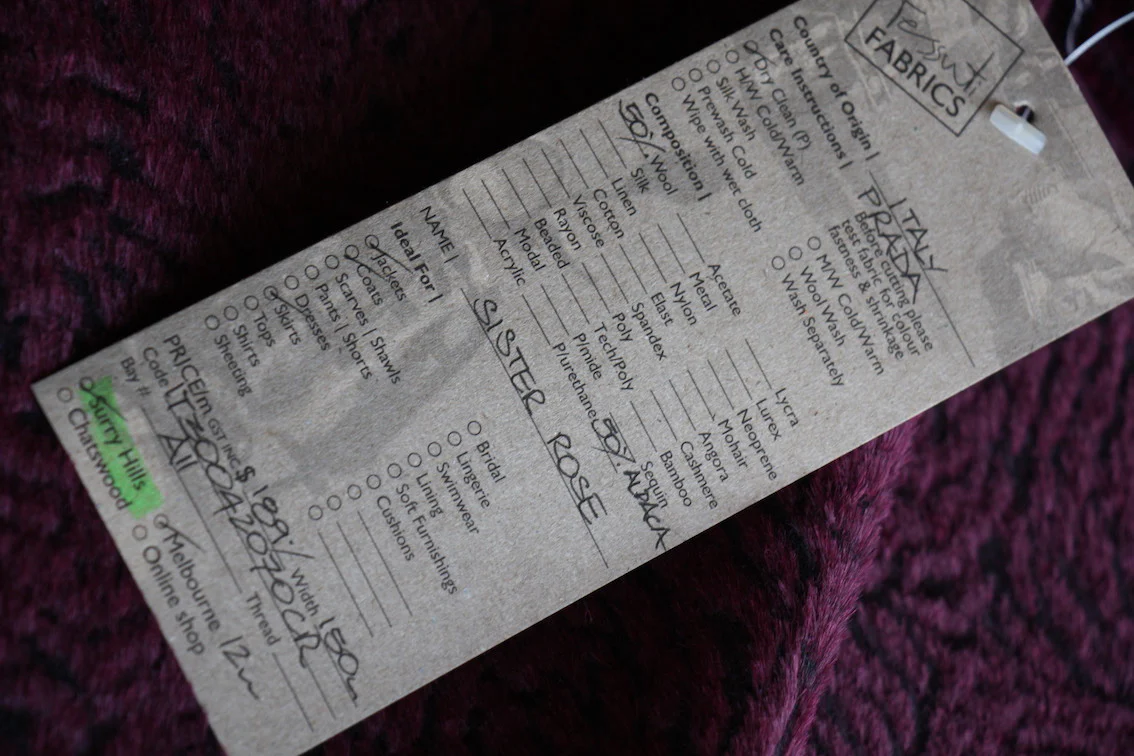 Tessuti
FABRICS
Country of Origin | ITALY
PRADA
Care Instructions | Before cutting please
test fabric for colour
fastness & shrinkage
Dry Clean (P)
H/W Cold/Warm
Silk Wash
Prewash Cold
Wipe with wet cloth
M/W Cold/Warm
Wool Wash
Wash Separately
Composition |
50% Wool
Silk
Linen
Cotton
Viscose
Rayon
Beaded
Modal
Acrylic
Acetate
Metal
Nylon
Elast
Spandex
Poly
Tech/Poly
P/mide
P/urethane
Lycra
Lurex
Neoprene
Mohair
Angora
Cashmere
Bamboo
Sequin
50% ALPACA
NAME | SISTER ROSE
Ideal For |
Jackets
Coats
Scarves | Shawls
Pants | Shorts
Dresses
Skirts
Tops
Shirts
Sheeting
Bridal
Lingerie
Swimwear
Lining
Soft Furnishings
Cushions
PRICE/m GST INC $189/ Width 150m
Code IT30042070CR
Bay # A11 Thread
Surry Hills
Chatswood
Melbourne 12m
Online shop